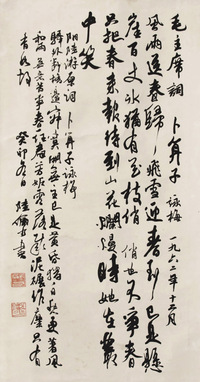 毛主席詞 卜算子 詠梅 一九六二年十二月
風雨送春歸 飛雪迎春到 已是懸
崖百丈冰 猶有花枝俏 俏也不爭春
只把春來報 待到山花爛漫時 她在叢
中笑
附陸游原詞 卜算子 詠梅
驛外斷橋邊 寂寞開無主 已是黃昏獨自愁 更著風
和雨 無意苦爭春 一任群芳妒 零落成泥碾作塵 只有
香如故 癸卯冬月